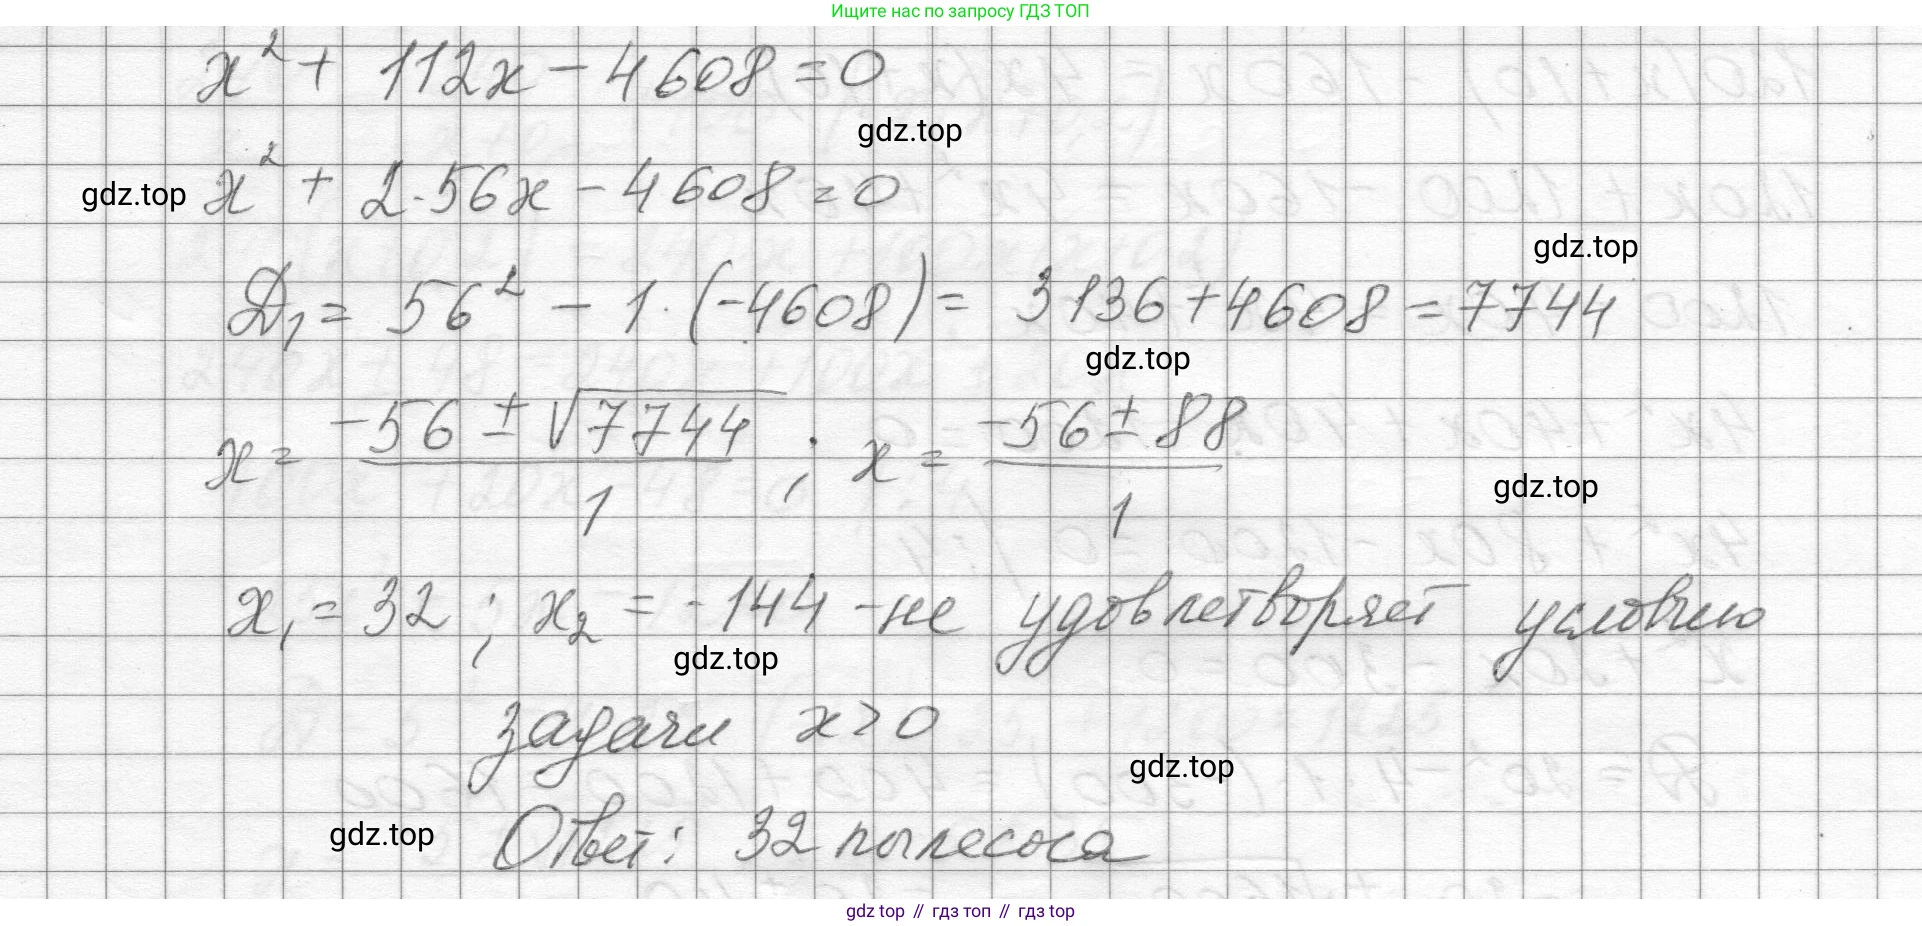 Ищите нас по запросу ГДЗ ТОП
x² + 112x - 4608 = 0
gdz.top
gdz.top x² + 2·56x - 4608 = 0
gdz.top
Д₁ = 56² - 1·(-4608) = 3136 + 4608 = 7744
gdz.top
x = (-56 ± √7744)/1 ; x = (-56 ± 88)/1
gdz.top
x₁ = 32 ; x₂ = -144 - не удовлетворяет условию
gdz.top
задачи x > 0
gdz.top
gdz.top Ответ: 32 пылесоса
gdz top // гдз топ // гдз top